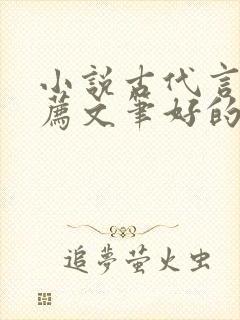 小說古代言
薦文筆好的
追夢螢火虫